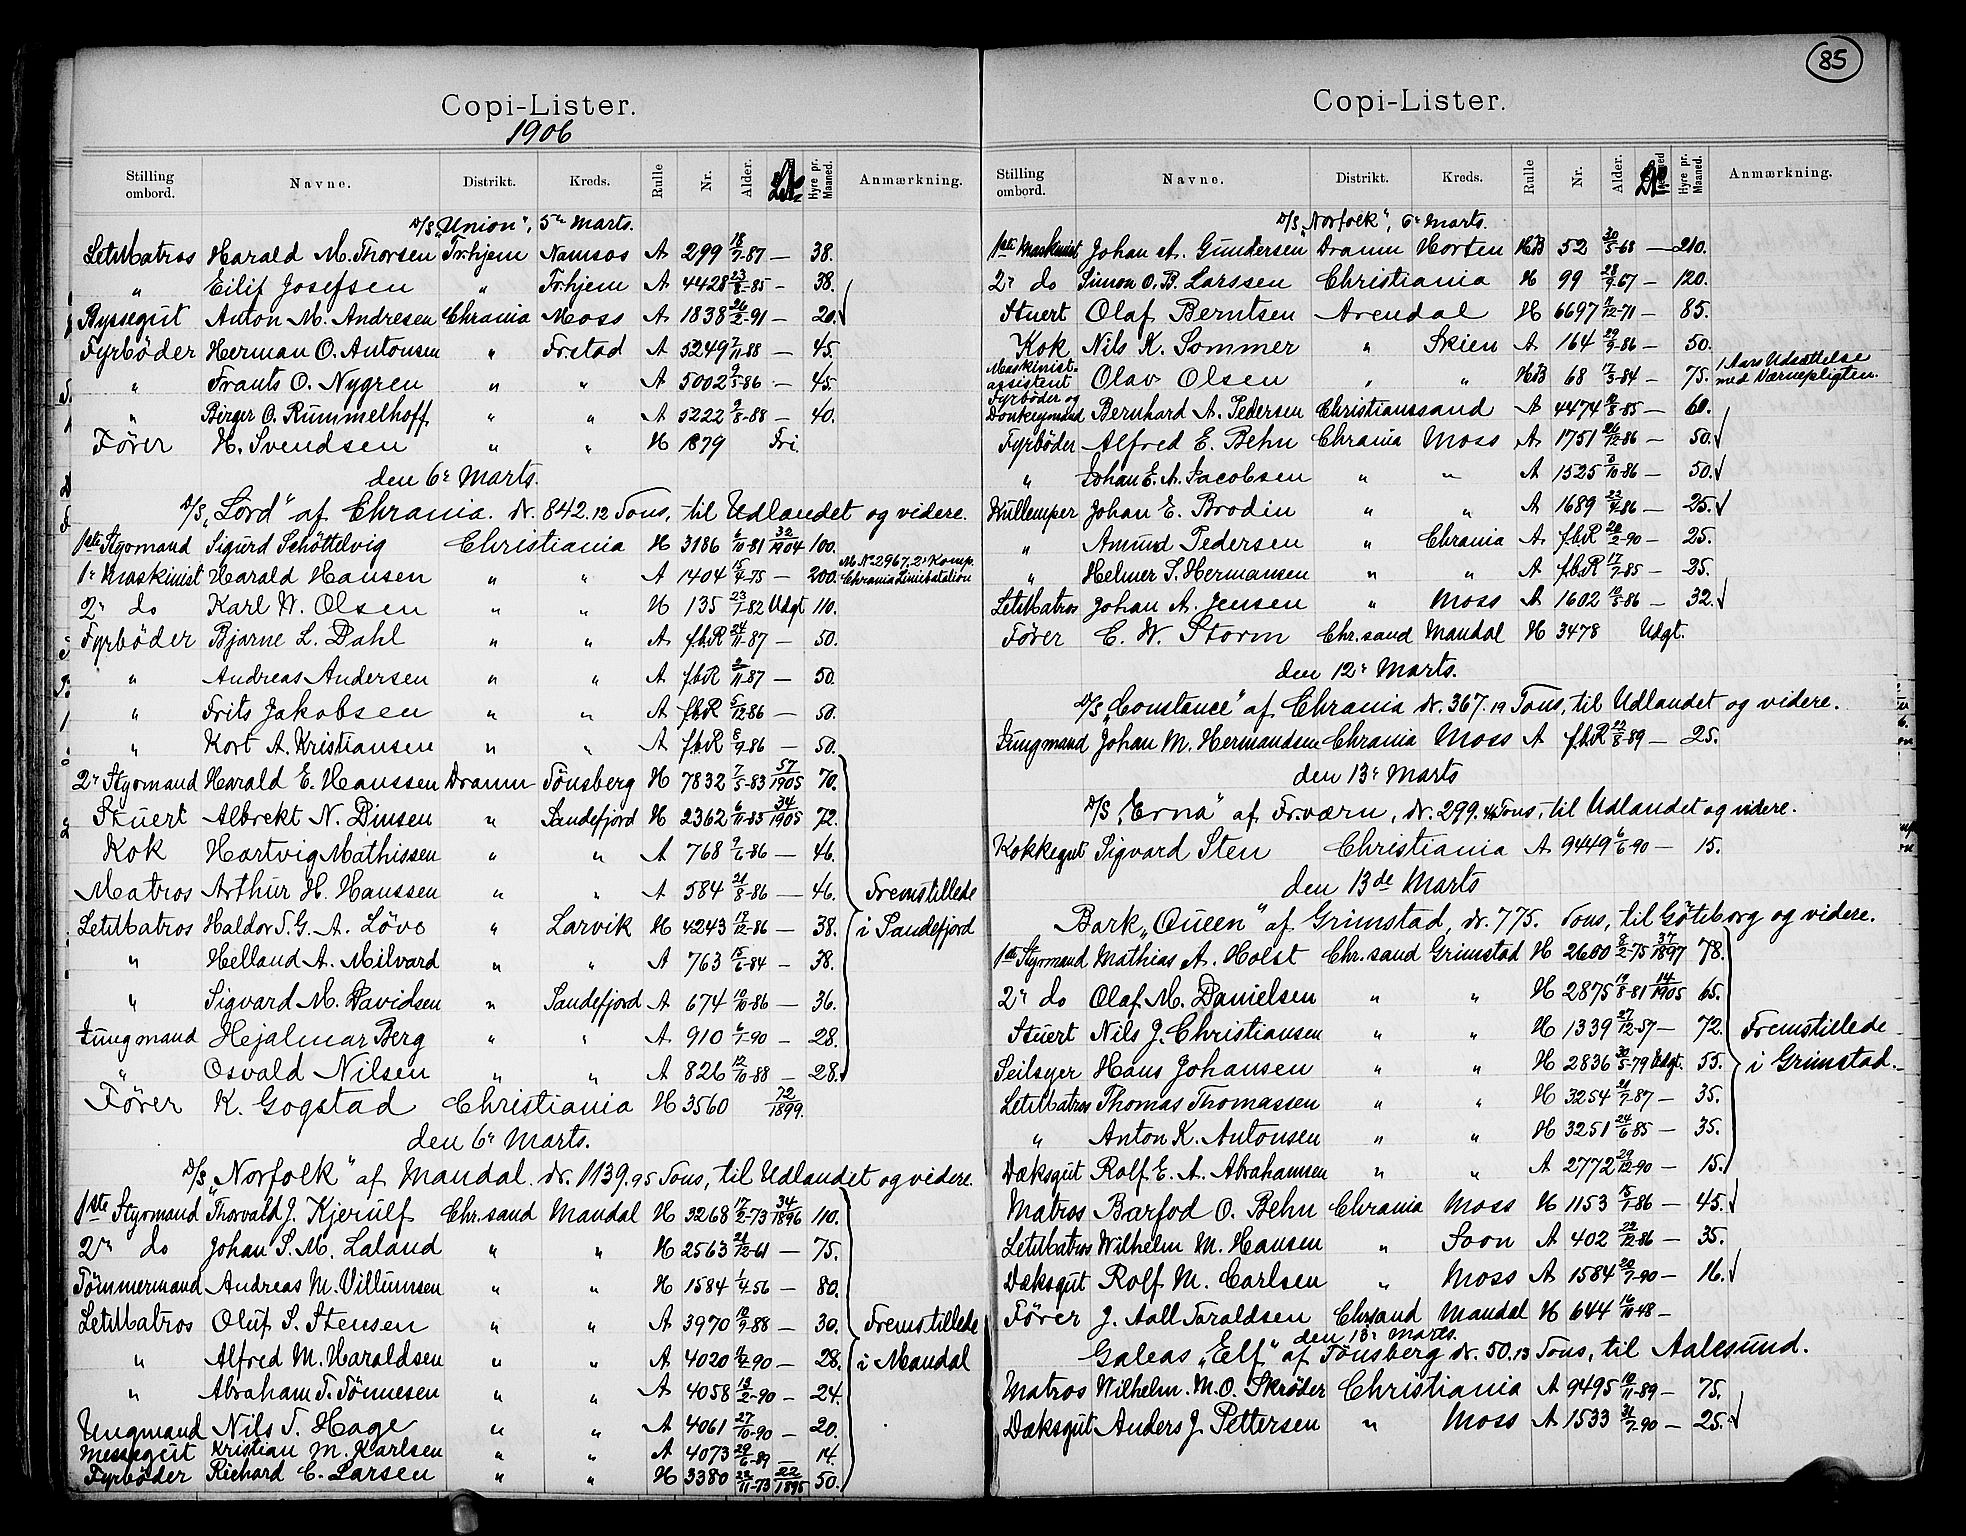 Copi-Lister.
1906
Stilling ombord. Navne. Distrikt. Kreds. Rulle Nr. Alder. Hyre pr. Maaned. Anmærkning.
D/S „Union", 5te Marts.
LetMatros Harald M. Thorsen Tr.hjem Namsos A 299 18/7-87 — 38.
" Eilif Josefsen " Tr.hjem A 4428 23/8-85 — 38.
Byssegut Anton M. Andresen Chrania Moss A 1838 26/2-91 — 20.
Fyrbøder Herman O. Antonsen " Frstad A 5249 7/11-88 — 45.
" Frants O. Nygren " " A 5002 9/5-86 — 45.
" Birger O. Rummelhoff " " A 5222 9/8-88 — 40.
Fører H. Svendsen " " H 1879 Fri.
den 6te Marts.
D/S „Lord" af Chrania. Dr. 842.12 Tons, til Udlandet og videre.
1ste Styrmand Sigurd Schøttelvig Christiania H 3186 6/10-81 32/1904 100.
1e Maskinist Harald Hansen " " A 1404 15/4-75 — 200. M No 2967. 2. Komp. Chrania Liniebatalion
2n do Karl W. Olsen " " H 135 23/1-82 Udgt 110.
Fyrbøder Bjarne L. Dahl " " A fbR 24/11-87 — 50.
" Andreas Andersen " " A fbR 2/11-87 — 50.
" Frits Jakobsen " " A fbR 5/12-86 — 50.
" Kort A. Kristiansen " " A fbR 8/9-86 — 50.
2n Styrmand Harald E. Hanssen Dramn Tønsberg H 7832 7/5-83 57/1905 70.
Stuert Albrekt N. Dinsen " Sandefjord H 2362 6/11-85 34/1905 72.
Kok Hartvig Mathissen " " A 768 9/6-86 — 46.
Matros Arthur H. Hanssen " " A 584 21/8-86 — 46. Fremstillede
LetMatros Haldor T. G. A. Løve " Larvik H 4243 19/12-86 — 38. i Sandefjord
" Helland A. Milvard " " A 763 15/6-84 — 38.
" Sigvard M. Davidsen " Sandefjord A 674 10/10-86 — 36.
Jungmand Hejalmar Berg " " A 910 6/7-90 — 28.
" Osvald Nilsen " " A 826 12/10-88 — 28.
Fører K. Gogstad Christiania H 3560 72/1899.
den 6te Marts.
D/S „Norfolk" af Mandal. Dr. 1139.95 Tons, til Udlandet og videre.
1ste Styrmand Thorvald J. Kjerulf Chr.sand Mandal H 3268 17/2-73 34/1896 110.
2n do Johan S. M. Laland " " H 2563 21/12-61 — 75.
Tømmermand Andreas M. Villumsen " " H 1584 1/4-56 — 80.
LetMatros Oluf S. Stensen " " A 3970 12/7-88 — 30. Fremstillede
" Alfred M. Haraldsen " " A 4020 9/12-90 — 28. i Mandal
" Abraham T. Tønnesen " " A 4058 13/2-90 — 24.
Ungmand Nils T. Hage " " A 4061 27/10-90 — 20.
Messegut Kristian M. Karlsen " " A 4073 29/6-89 — 14.
Fyrbøder Richard C. Larsen " " H 3380 22/11-73 22/1895 50.
85
Copi-Lister.
Stilling ombord. Navne. Distrikt. Kreds. Rulle Nr. Alder. Hyre pr. Maaned. Anmærkning.
D/S „Norfolk", 6te Marts.
1ste Maskinist Johan A. Gundersen Dramn Horten HB 52 30/5-68 — 210.
2n do Simon O. B. Larssen Christiania H 99 28/9-67 — 120.
Stuert Olaf Berntsen Arendal H 6697 9/12-71 — 85.
Kok Nils K. Sommer " Skien A 164 29/9-86 — 50.
Maskinist-assistent Olav Olsen " " HB 68 17/3-84 — 75. 1 Aars Udsættelse med Værnepligten.
Fyrbøder og Donkeymand Bernhard A. Pedersen Christianssand A 4474 12/8-85 — 60.
Fyrbøder Alfred E. Behn Chrania Moss A 1751 26/12-86 — 50.
" Johan E. A. Jacobsen " " A 1525 3/10-86 — 50.
Kullemper Johan E. Brodin " " A 1689 22/4-86 — 25.
" Amund Pedersen " Chrania A fbR 20/2-90 — 25.
" Helmer S. Hermansen " " A fbR 17/7-85 — 25.
LetMatros Johan A. Jensen " Moss A 1602 12/5-86 — 32.
Fører E. W. Storm Chr.sand Mandal H 3478 Udgt.
den 12te Marts.
D/S „Constance" af Chrania Dr. 367.19 Tons, til Udlandet og videre.
Jungmand Johan M. Hermandsen Chrania Moss A fbR 12/8-89 — 25.
den 13te Marts
D/S „Erna" af Fr.værn, Dr. 299.44 Tons, til Udlandet og videre.
Kokkegut Sigvard Sten Christiania A 9449 6/6-90 — 15.
den 13de Marts
Bark „Queen" af Grimstad, Dr. 775. Tons, til Gøteborg og videre.
1ste Styrmand Mathias A. Holst Chr.sand Grimstad H 2600 8/2-75 37/1897 78.
2n do Olaf M. Danielsen " " H 2875 19/8-81 14/1905 65.
Stuert Nils J. Christiansen " " H 1339 27/12-57 — 72. Fremstillede
Seilsyer Hans Johansen " " H 2836 30/5-79 Udgt. 55. i Grimstad.
LetMatros Thomas Thomassen " " H 3254 21/7-87 — 35.
" Anton K. Antonsen " " H 3251 24/6-85 — 35.
Dæksgut Rolf E. A. Abrahamsen " " A 2772 29/12-90 — 15.
Matros Barfod O. Behn Chrania Moss H 1153 15/1-86 — 45.
LetMatros Wilhelm M. Hansen " Soon A 402 22/12-86 — 35.
Dæksgut Rolf M. Carlsen " Moss A 1584 20/7-90 — 16.
Fører J. Aall Taraldsen Chrsand Mandal H 644 16/10-48 —
den 13te Marts.
Galeas „Elf" af Tønsberg Dr. 50.13 Tons, til Aalesund.
Matros Wilhelm. M. O. Skrøder Christiania A 9495 19/11-89 — 75.
Dæksgut Anders J. Pettersen " Moss A 1533 31/7-90 — 25.